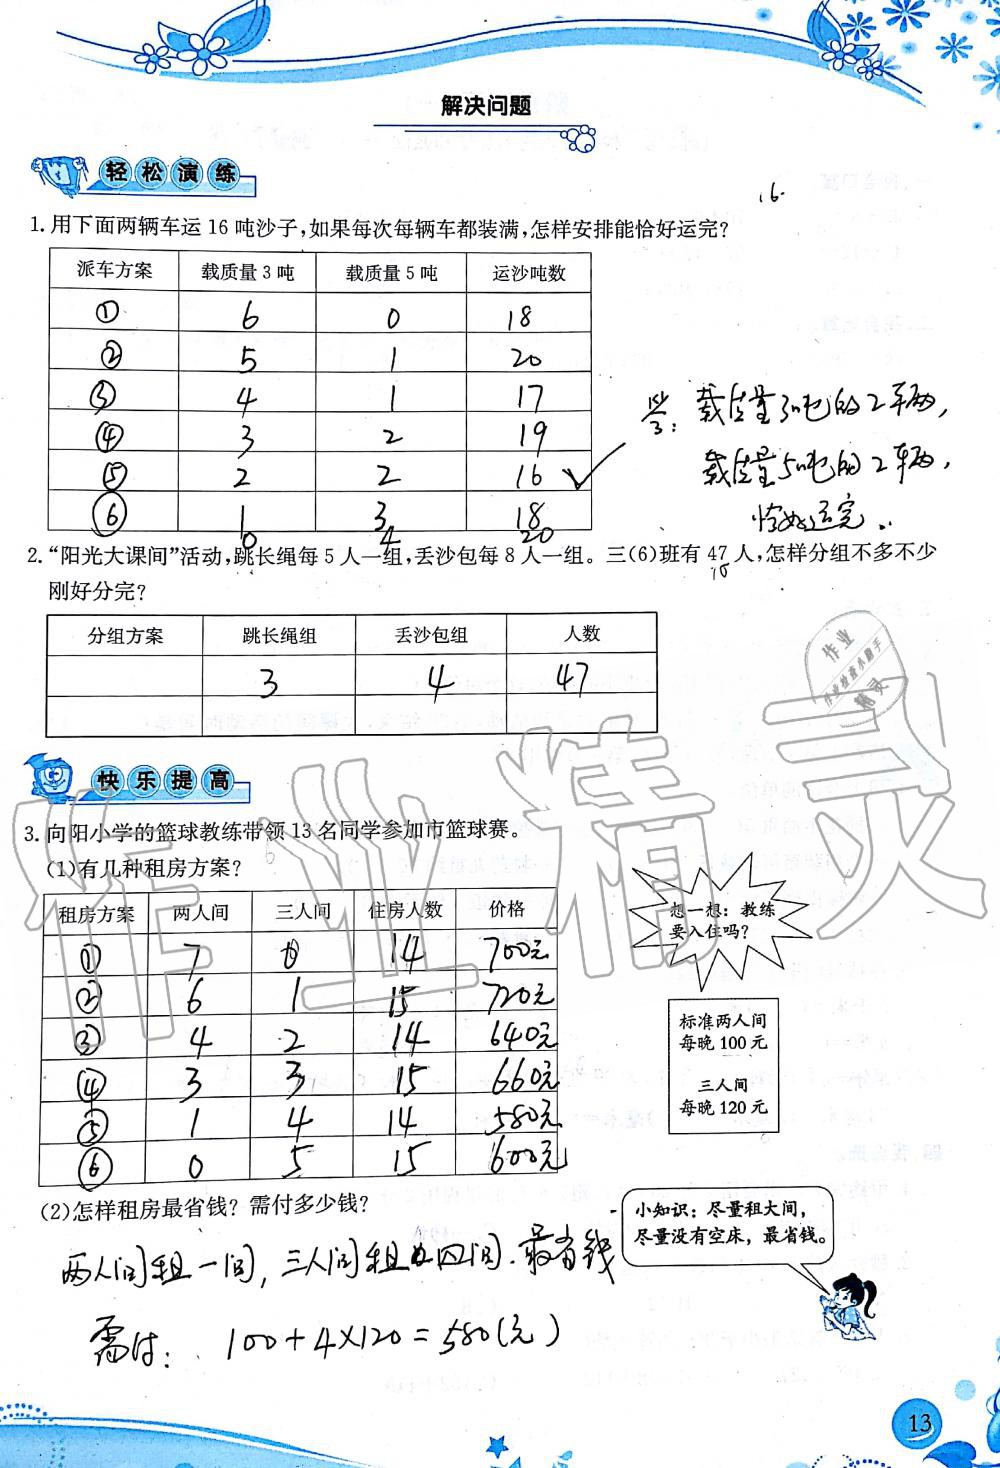 解决问题
轻松演练
16.
1. 用下面两辆车运 16 吨沙子,如果每次每辆车都装满,怎样安排能恰好运完?
派车方案 载质量 3 吨 载质量 5 吨 运沙吨数
① 6 0 18
② 5 1 20
③ 4 1 17
④ 3 2 19
⑤ 2 2 16 ✓
⑥ 1 3 18
0 4 20
答: 载质量3吨的2辆,
载质量5吨的2辆,
恰好运完.
2. “阳光大课间”活动,跳长绳每 5 人一组,丢沙包每 8 人一组。三(6)班有 47 人,怎样分组不多不少
刚好分完?
分组方案 跳长绳组 丢沙包组 人数
3 4 47
作业
作业检查小助手
精灵
快乐提高
作业精灵
3. 向阳小学的篮球教练带领 13 名同学参加市篮球赛。
(1)有几种租房方案?
租房方案 两人间 三人间 住房人数 价格
① 7 0 14 700元
② 6 1 15 720元
③ 4 2 14 640元
④ 3 3 15 660元
⑤ 1 4 14 580元
⑥ 0 5 15 600元
想一想：教练
要入住吗?
标准两人间
每晚 100 元
三人间
每晚 120 元
(2)怎样租房最省钱? 需付多少钱?
小知识：尽量租大间,
尽量没有空床，最省钱。
两人间租一间, 三人间租四间.最省钱
需付: 100+4×120=580(元)
13